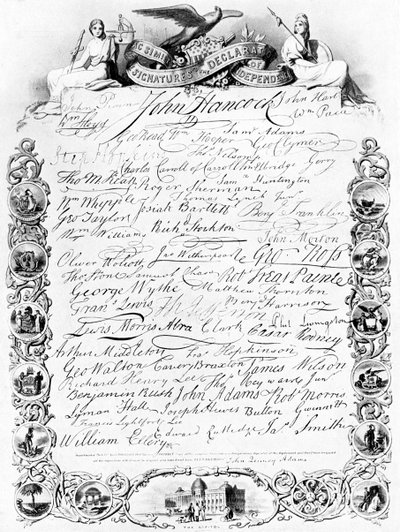 FAC SIMILE
SIGNATURES TO THE DECLARATION OF INDEPENDENCE
John Penn John Hancock John Hart
Wm Floyd Wm Paca
Geo Read Wm Hooper Saml Adams
Step Hopkins Geo Clymer
Charles Carroll of Carrollton Elbridge Gerry
Tho M:Kean Roger Sherman Saml Huntington
Wm Whipple Thomas Lynch Junr
Geo Taylor Josiah Bartlett Benj Franklin
Wm Williams Richd Stockton John Morton
Oliver Wolcott Jno Witherspoon Geo Ross
Thos Stone Samuel Chase Robt Treat Paine
George Wythe Matthew Thornton
Frans Lewis Th Jefferson Benj Harrison
Lewis Morris Abra Clark Cæsar Rodney
Phil Livingston
Arthur Middleton Fras Hopkinson
Geo Walton Carter Braxton James Wilson
Richard Henry Lee Thos Heyward Junr
Benjamin Rush John Adams Robt Morris
Lyman Hall Joseph Hewes Button Gwinnett
Francis Lightfoot Lee
William Ellery Edward Rutledge Jas Smith
John Quincy Adams